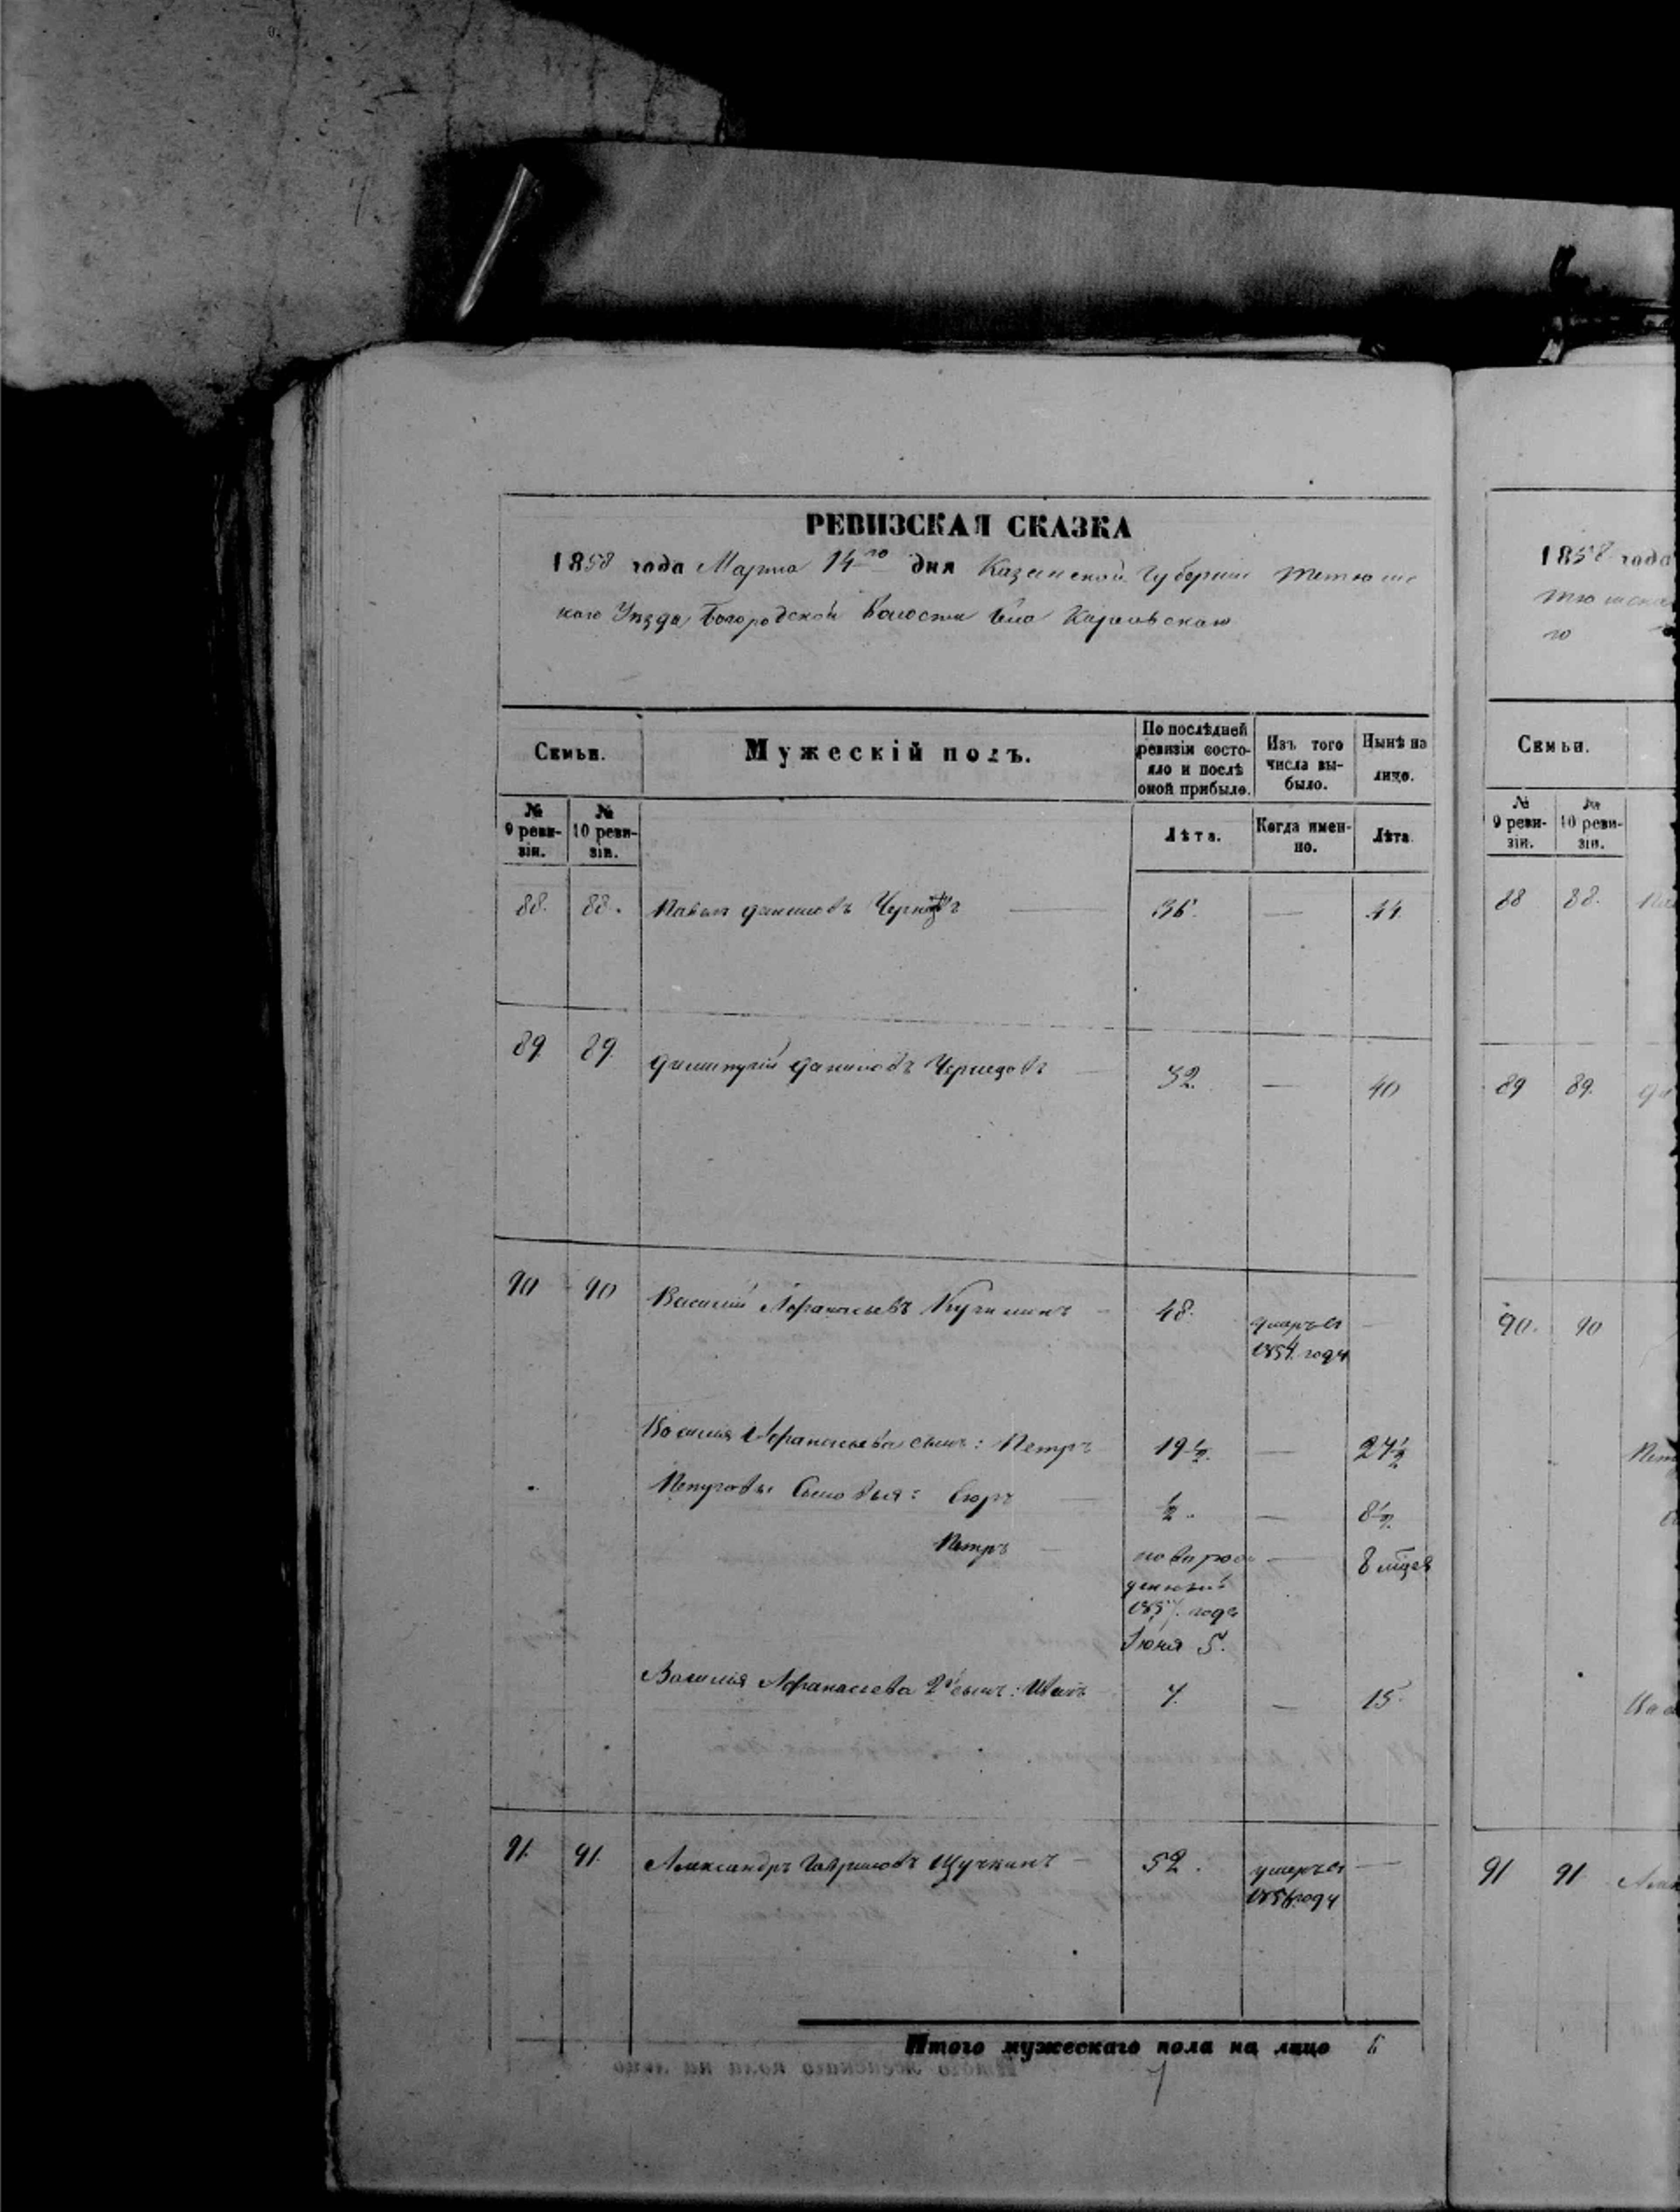 РЕВИЗСКАЯ СКАЗКА
1858 года Марта 14го дня Казанской Губерніи Тетюшс
каго Уѣзда Богородской Волости Села
1858 года
го
Семьи.
Мужескій полъ.
По послѣдней ревизіи состояло и послѣ оной прибыло.
Изъ того числа выбыло.
Нынѣ на лицо.
Семьи.
№ 9 ревизіи.
№ 10 ревизіи.
Лѣта.
Когда именно.
Лѣта.
№ 9 ревизіи.
№ 10 ревизіи.
88. 88. Павелъ Даниловъ — 36. — 44.
88 88.
89. 89. Димитрій Даниловъ — 32. — 40
89 89.
90 90 Василій Афанасьевъ — 48. умеръ въ —
1854 году
90. 90
Василія Афанасьева сынъ: Петръ 19½. — 27½
Петровы Сыновья: Егоръ — ½. — 8½.
Петръ — новорож — 8 мѣцев
денный
1857. года
Іюня 5.
Василія Афанасьева 2й сынъ: Иванъ 7. — 15.
91. 91. Александръ Гавриловъ Щучкинъ — 52. умеръ въ —
году
91 91
Итого мужескаго пола на лицо
Итого женскаго пола на лицо